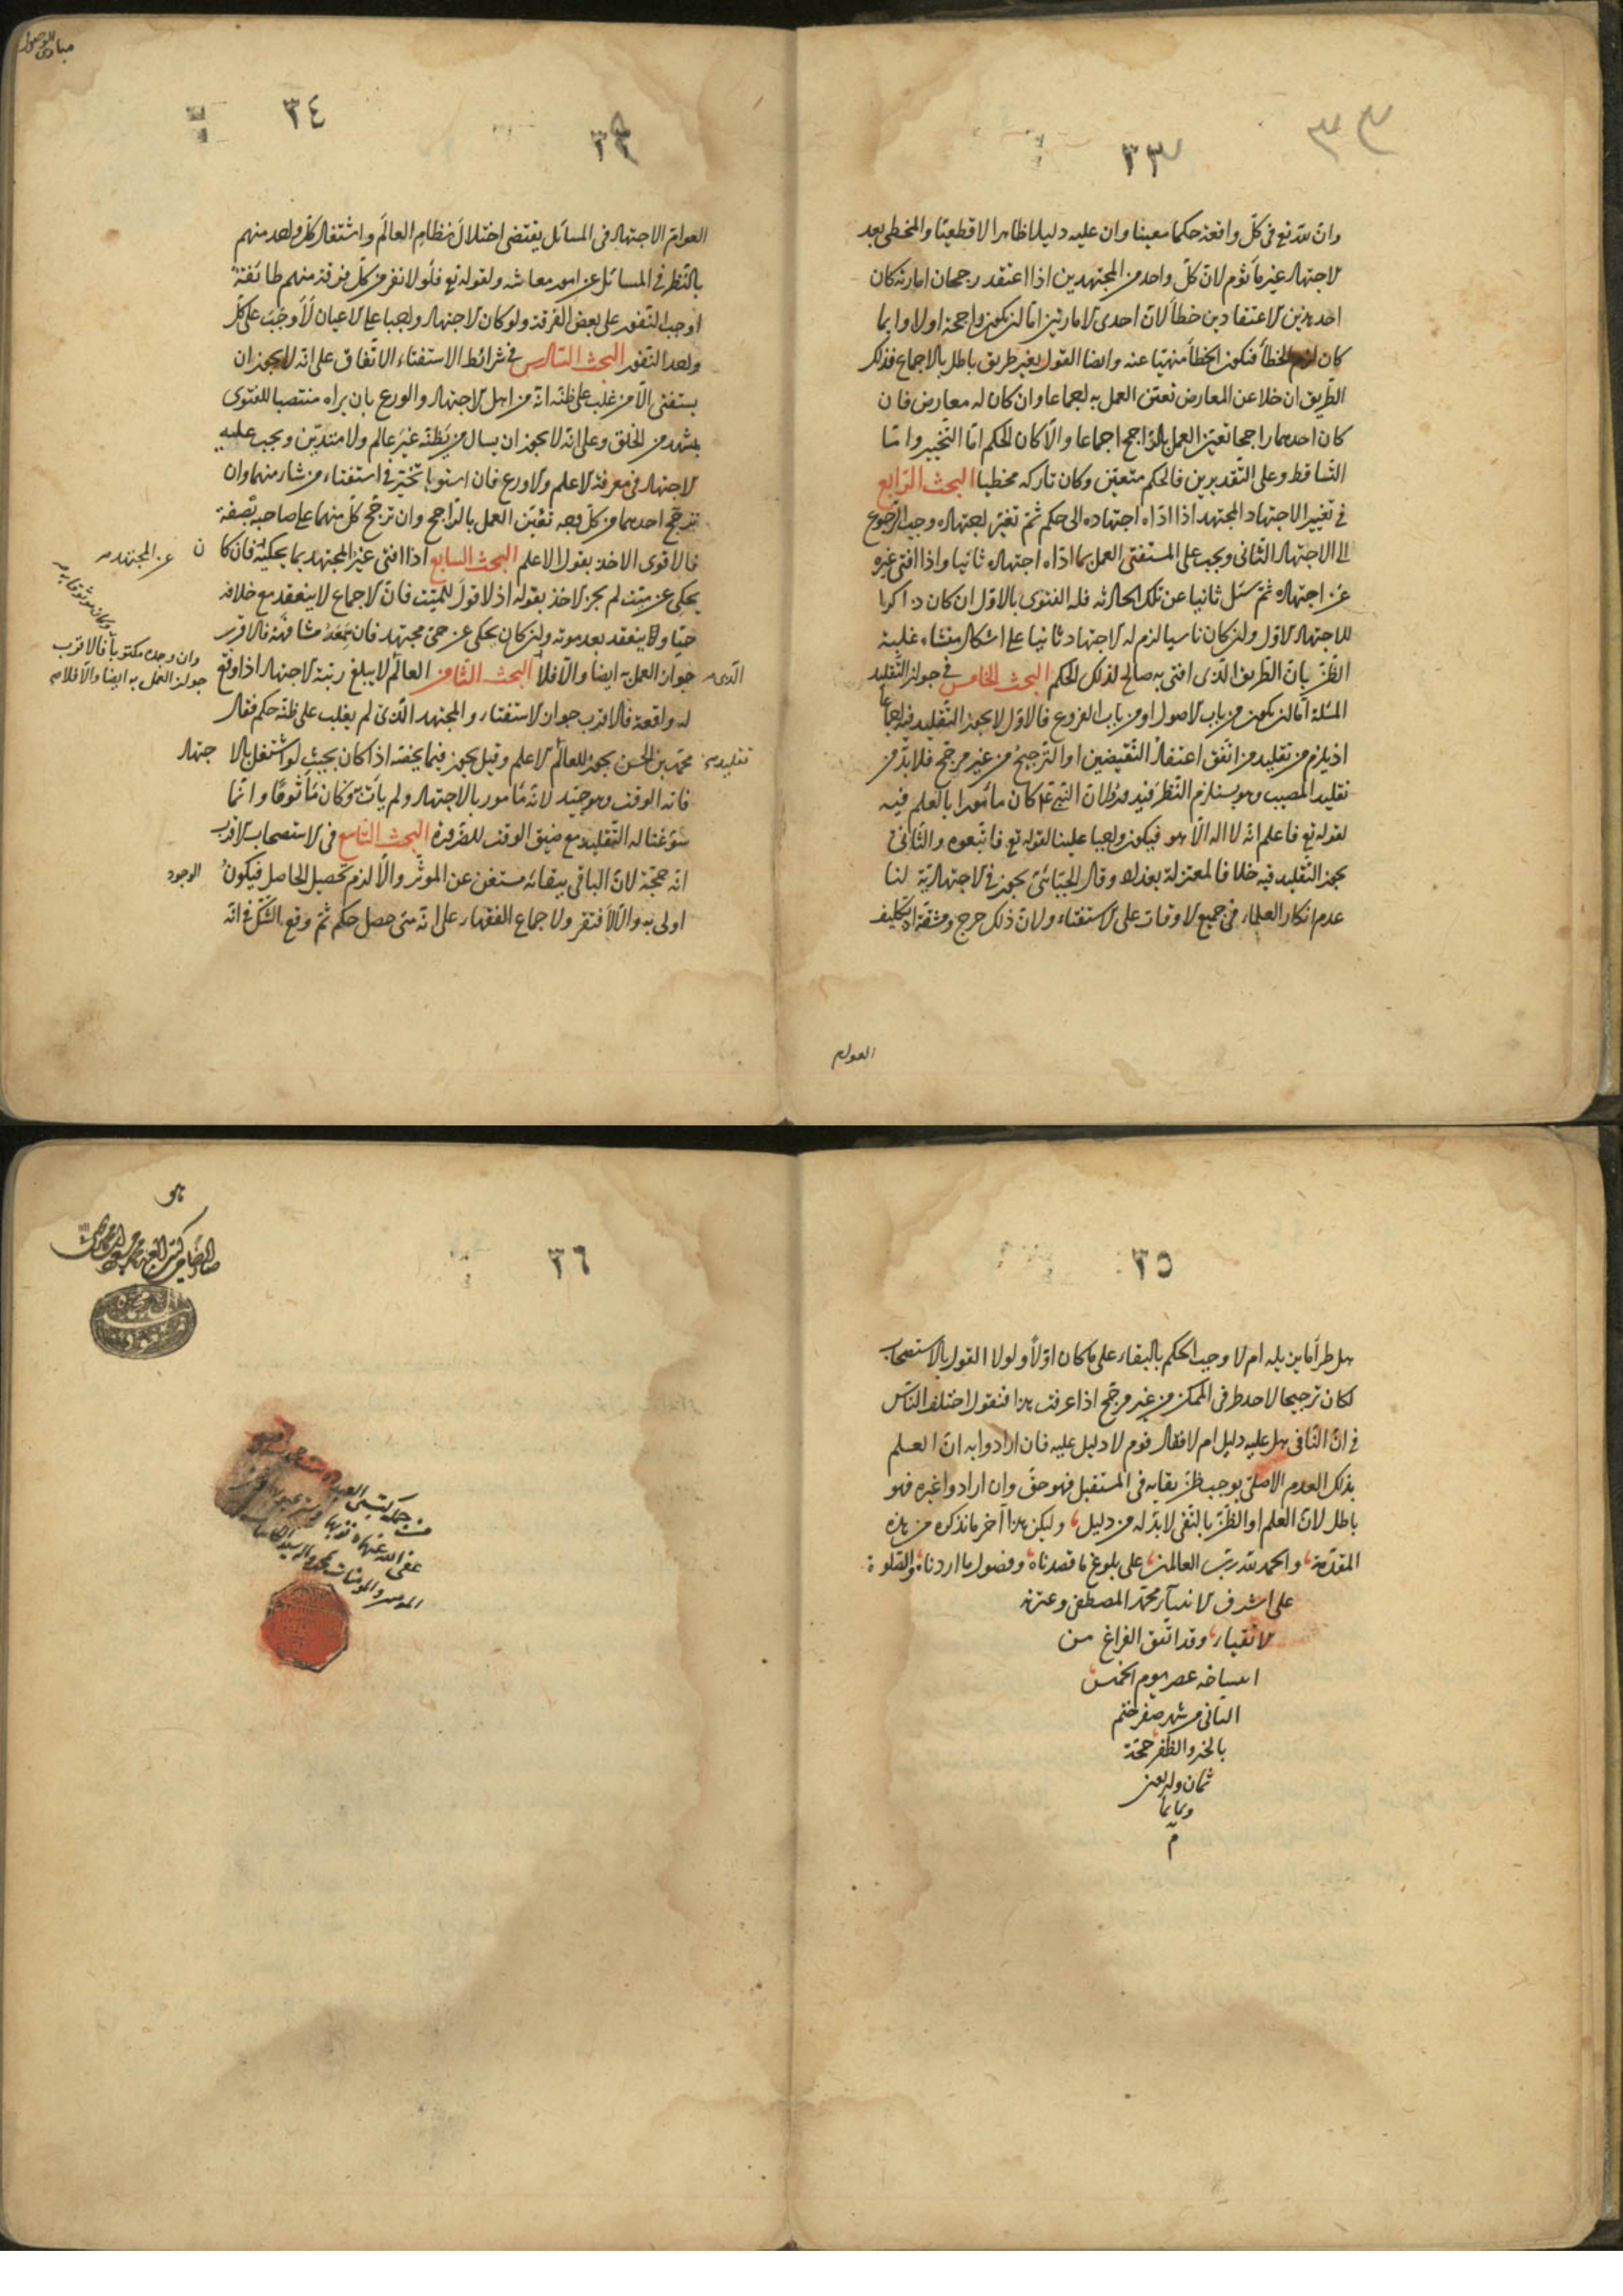 ٣٣
وان لله تع فى كلّ واقعة حكما معينا وان عليه دليلا ظاهرا لا قطعيّا والمخطى بعد
الاجتهاد غير مأثوم لانّ كلّ واحد من المجتهدين اذا اعتقد رجحان امارته كان
احد هذين الاعتقادين خطأ لانّ احدى الامارتين امّا ان تكون راجحة اولا وايما
كان لزم الخطأ فيكون الخطأ منهيا عنه وايضا القول بغير طريق باطل بالاجماع فذلك
الطّريق ان خلا عن المعارض تعيّن العمل به اجماعا وان كان له معارض فان
كان احدهما راجحا تعيّن العمل بالرّاجح اجماعا والّا كان الحكم امّا التّخيير وامّا
التّساقط وعلى التّقديرين فالحكم متعيّن وكان تاركه مخطيا البحث الرّابع
فى تغيير الاجتهاد المجتهد اذا ادّاه اجتهاده الى حكم ثمّ تغيّر اجتهاده وجب الرّجوع
الى الاجتهاد الثّانى ويجب على المستفتى العمل بما ادّاه اجتهاده ثانيا واذا افتى غيره
عن اجتهاده ثمّ سئل ثانيا عن تلك الحادثه فله الفتوى بالاوّل ان كان ذاكرا
للاجتهاد الاوّل وان كان ناسيا لزم له الاجتهاد ثانيا على اشكال منشاه غلبة
الظّنّ بانّ الطّريق الّذى افتى به صالح لذلك الحكم البحث الخامس فى جواز التّقليد
المسئلة امّا ان تكون من باب الاصول او من باب الفروع فالاوّل لا يجوز التّقليد فيه اجماعا
اذ يلزم من تقليد من اتّفق اعتقاد النّقيضين او التّرجيح من غير مرجّح فلا بدّ من
تقليد المصيب وهو يستلزم النّظر فيدور ولانّ النبى ع كان مأمورا بالعلم فيه
لقوله تع فاعلم انّه لا اله الّا هو فيكون واجبا علينا لقوله تع فاتّبعوه والثّانى
يجوز التّقليد فيه خلافا لمعتزلة بغداد وقال الجبّائىّ يجوز فى الاجتهاديّة لنا
عدم انكار العلماء فى جميع الاوقات على الاستفتاء ولانّ ذلك حرج ومشقّة اذ تكليف
العوام
مبادى الوصول
٣٤
العوام الاجتهاد فى المسائل يقتضى اختلال نظام العالَم واشتغال كلّ واحد منهم
بالنّظر فى المسائل عن امور معاشه ولقوله تع فلولا نفر من كلّ فرقة منهم طائفة
اوجب النّفور على بعض الفرقة ولو كان الاجتهاد واجبا على الاعيان لاوجب على كلّ
واحد النّفور البحث السّادس فى شرائط الاستفتاء الاتّفاق على انّه لا يجوز ان
يستفتى الّا من غلب على ظنّه انّه من اهل الاجتهاد والورع بان يراه منتصبا للفتوى
بمشهد من الخلق وعلى انّه لا يجوز ان يسال من يظنّه غير عالم ولا متديّن ويجب عليه
الاجتهاد فى معرفة الاعلم والاورع فان استويا تخيّر فى استفتاء من شاء منهما وان
ترجّح احدهما من كلّ وجه تعيّن العمل بالرّاجح وان ترجّح كلّ منهما على صاحبه بصفة
فالاقوى الاخذ بقول الاعلم البحث السّابع اذا افتى غير المجتهد بما يحكيه فان كان
عن المجتهد
يحكى عن ميّت لم يجز الاخذ بقوله اذ لا قول للميّت فانّ الاجماع لا ينعقد مع خلافه
حيّا وينعقد بعد موته وان كان يحكى عن حىّ مجتهد فان سمعه مشافهة فالاقرب
جواز العمل به ايضا والّا فلا البحث الثّامن العالم لا يبلغ رتبة الاجتهاد اذا وقع
الّذى
وان وجده مكتوبا فالاقرب
جواز العمل به ايضا والّا فلا
له واقعة فالاقرب جواز الاستفتاء والمجتهد الّذى لم يغلب على ظنّه حكم فقال
محمّد بن الحسن يجوز للعالم الاعلم وقيل يجوز فيما يخصّه اذا كان بحيث لو اشتغل بالاجتهاد
تقليد
فاته الوقت وهو جيّد لانّه مأمور بالاجتهاد ولم يأت به وكان مأثوما وانّما
سوّغنا له التّقليد مع ضيق الوقت للضّرورة البحث التّاسع فى الاستصحاب الاقرب
انّه حجّة لانّ الباقى ببقائه مستغن عن الموثّر والّا لزم تحصيل الحاصل فيكون الوجود
اولى به والّا لافتقر ولاجماع الفقهاء على انّه متى حصل حكم ثمّ وقع الشّكّ فى انّه
٣٥
هل طرأ ما يزيله ام لا وجب الحكم بالبقاء على ما كان اوّلا ولولا القول بالاستصحاب
لكان ترجيحا لاحد طرفى الممكن من غير مرجّح اذا عرفت هذا فنقول اختلف النّاس
فى انّ النّافى هل عليه دليل ام لا فقال قوم لا دليل عليه فان ارادوا به انّ العلم
بذلك العدم الاصلىّ يوجب ظنّ بقايه فى المستقبل فهو حقّ وان ارادوا غيره فهو
باطل لانّ العلم او الظّنّ بالنّفى لا بدّ له من دليل وليكن هذا آخر ما نذكره من هذه
المقدّمة والحمد لله ربّ العالمين على بلوغ ما قصدناه وحصول ما اردناه والصّلوة
على اشرف الانبياء محمّد المصطفى وعترته
الاتقياء وقد اتّفق الفراغ من
انتساخه عصر يوم الخميس
الثانى من شهر صفر ختم
بالخير والظفر حجّة
ثمان واربعين
وثمانمائة
م
٣٦
هو